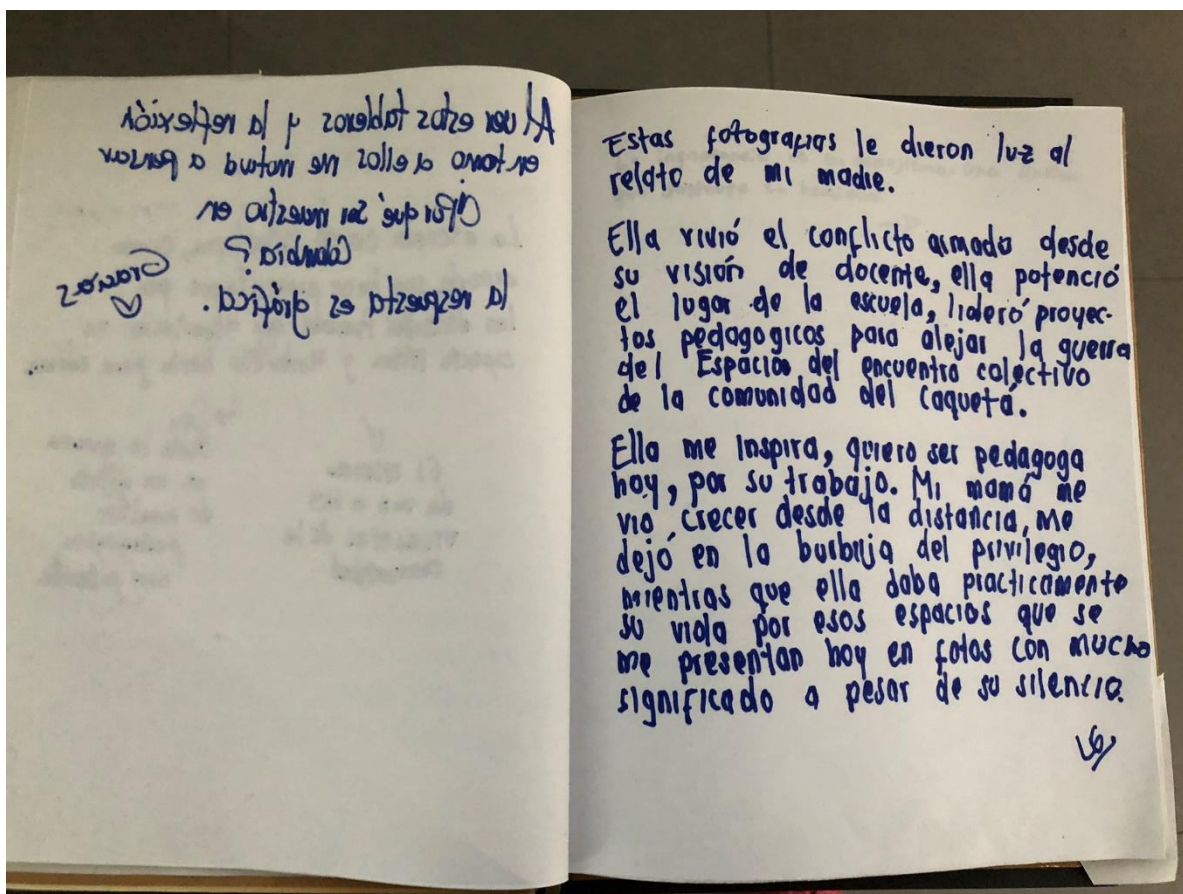 Al ver estos tableros y la reflexión
en torno a ellos me motiva a pensar
¿Por qué ser maestro en
Colombia?
la respuesta es gráfica.
Gracias
Estas fotografias le dieron luz al
relato de mi madre.
Ella vivió el conflicto armado desde
su visión de docente, ella potenció
el lugar de la escuela, lideró proyec-
tos pedagogicos para alejar la guerra
del Espacios del encuentro colectivo
de la comunidad del Caquetá.
Ella me inspira, quiero ser pedagoga
hoy, por su trabajo. Mi mamá me
vio crecer desde la distancia, me
dejó en la burbuja del privilegio,
mientras que ella daba practicamente
su vida por esos espacios que se
me presentan hoy en fotos con mucho
significado a pesar de su silencio.